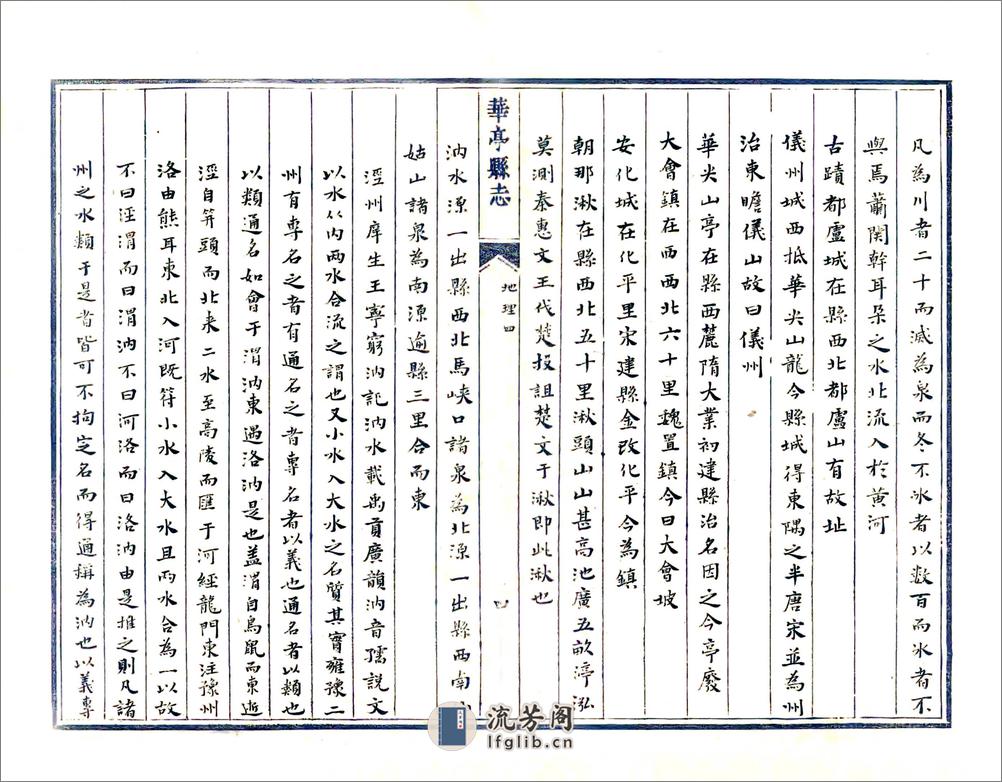 凡為川者二十而減為泉而冬不冰者以数百而冰者不
與焉蕭関幹耳朶之水北流入於黄河
古蹟都盧城在縣西北都盧山有故址
儀州城西抵華尖山龍今縣城得東隅之半唐宋並為州
治東瞻儀山故曰儀州
華尖山亭在縣西麓隋大業初建縣治名因之今亭廢
大會鎮在西西北六十里魏置鎮今曰大會坡
安化城在化平里宋建縣金改化平今為鎮
朝那湫在縣西北五十里湫頭山山甚高池廣五畝渟泓
莫測秦惠文王代楚投詛楚文于湫即此湫也
華亭縣志
地理四
四
汭水源一出縣西北馬峡口諸泉為北源一出縣西南
姑山諸泉為南源逾縣三里合而東
涇州庠生王寧窮汭記汭水載禹貢廣韻汭音孺説文
以水从内两水合流之謂也又小水入大水之名質其實雍豫二
州有專名之者有通名之者專名者以義也通名者以類也
以類通名如會于渭汭東過洛汭是也盖渭自鳥鼠而東逝
涇自笄頭而北来二水至高陵而匯于河經龍門東注豫州
洛由熊耳東北入河既符小水入大水且两水合為一以故
不曰涇渭而曰渭汭不曰河洛而曰洛汭由是推之則凡諸
州之水類于是者皆可不拘定名而得通稱為汭也以義專
流芳阁
lfglib.cn